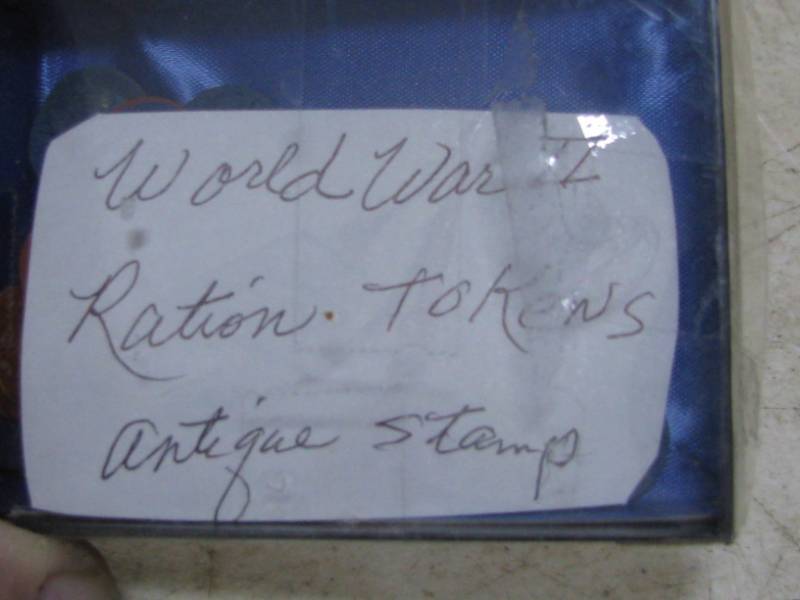 World War I
Ration. Tokens
antique stamp